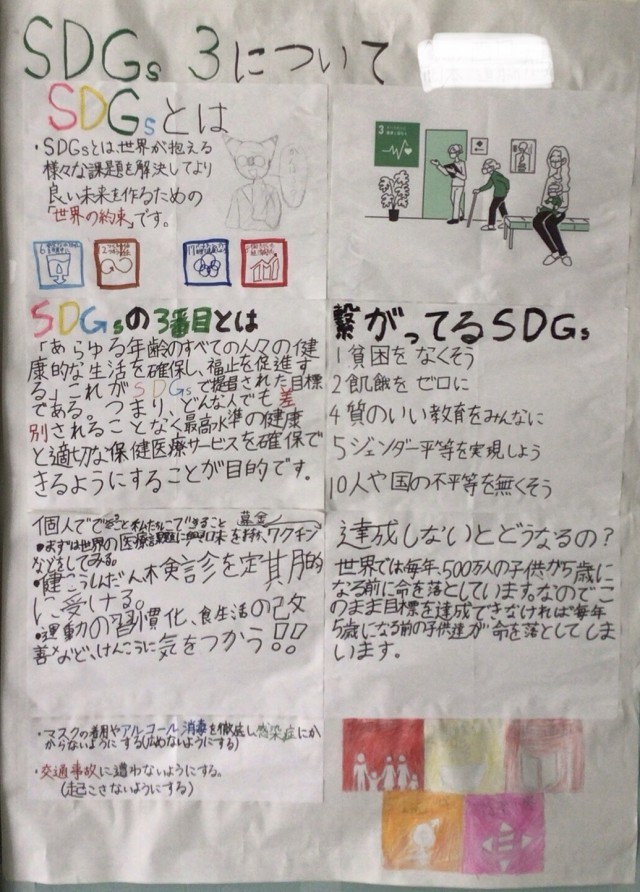 SDGs 3について
SDGsとは
・SDGsとは世界が抱える
様々な課題を解決してより
良い未来を作るための
「世界の約束」です。
SDGsの3番目とは
「あらゆる年齢のすべての人々の健
康的な生活を確保し、福祉を促進す
る」これがSDGsで提唱された目標
である。つまり、どんな人でも差
別されることなく最高水準の健康
と適切な保健医療サービスを確保で
きるようにすることが目的です。
繋がってるSDGs
1貧困をなくそう
2飢餓をゼロに
4質のいい教育をみんなに
5ジェンダー平等を実現しよう
10人や国の不平等を無くそう
個人でできること私たちにできること 募金
・まずは世界の医療課題に興味を持ち、ワクチン
などをしてみる。
・健こうしんだん木検診を定其月的
に受ける。
・運動の習慣化、食生活の改
善など、けんこうに気をつかう!!
達成しないとどうなるの?
世界では毎年、500万人の子供が5歳に
なる前に命を落としています。なのでこ
のまま目標を達成できなければ毎年
5歳になる前の子供達が命を落としてしま
います。
・マスクの着用やアルコール消毒を徹底し感染症にか
からないようにする(広めないようにする)
・交通事故に遭わないようにする。
(起こさないようにする)